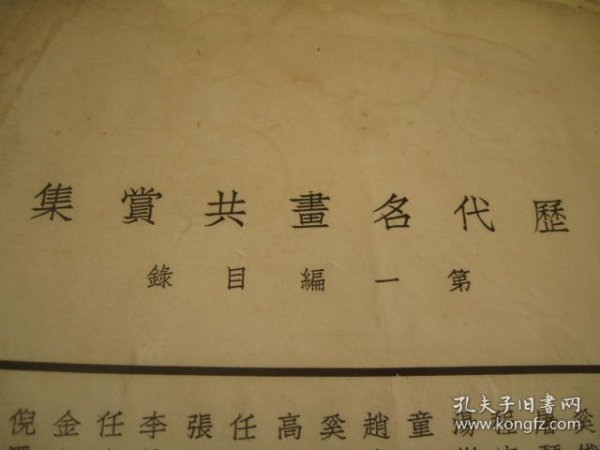 歷代名畫共賞集
第一編目錄
奚 湯童趙奚高任張李任金倪
孔夫子旧书网
www.kongfz.com